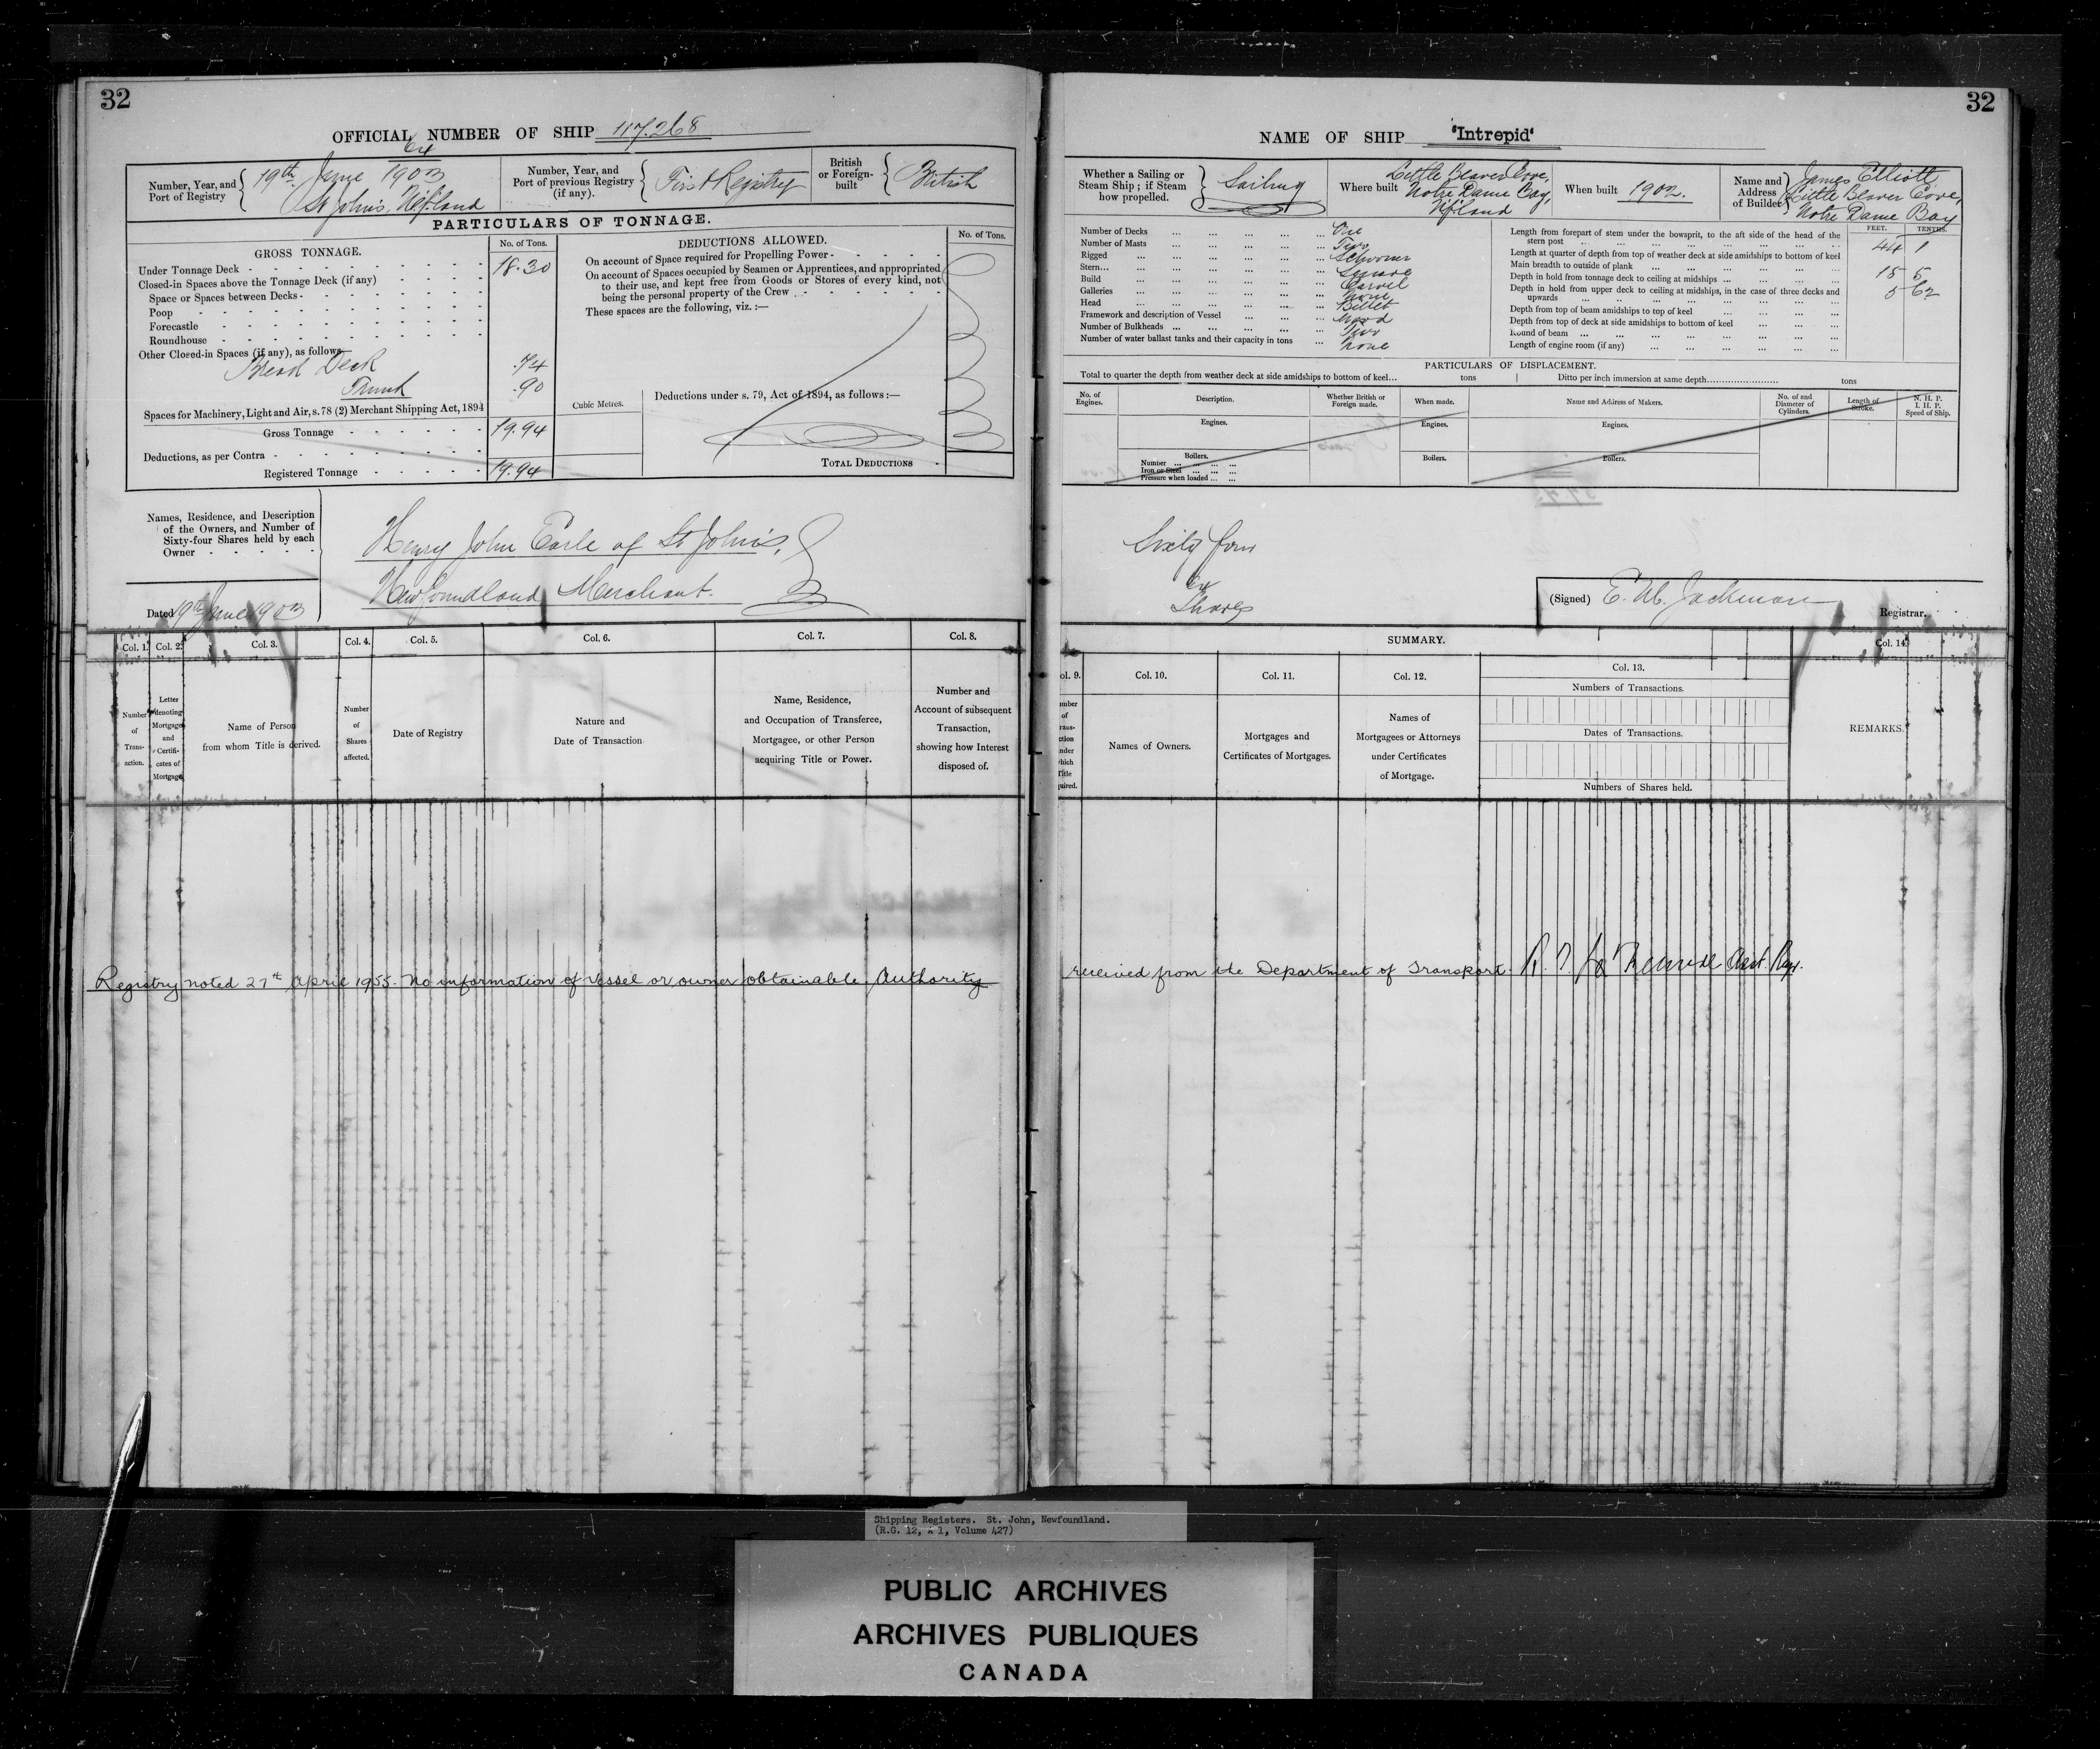 32
OFFICIAL NUMBER OF SHIP 117.268
Number, Year, and Port of Registry
19th June 1903
St John's, N'f'land
Number, Year, and Port of previous Registry (if any).
First Registry
British or Foreign-built
British
PARTICULARS OF TONNAGE.
GROSS TONNAGE.
No. of Tons.
Under Tonnage Deck 18.30
Closed-in Spaces above the Tonnage Deck (if any)
Space or Spaces between Decks
Poop
Forecastle
Roundhouse
Other Closed-in Spaces (if any), as follows
Break Deck .74
Trunk .90
Spaces for Machinery, Light and Air, s. 78 (2) Merchant Shipping Act, 1894
Gross Tonnage 19.94
Deductions, as per Contra
Registered Tonnage 19.94
DEDUCTIONS ALLOWED.
No. of Tons.
On account of Space required for Propelling Power
On account of Spaces occupied by Seamen or Apprentices, and appropriated
to their use, and kept free from Goods or Stores of every kind, not
being the personal property of the Crew
These spaces are the following, viz. :—
Cubic Metres.
Deductions under s. 79, Act of 1894, as follows :—
TOTAL DEDUCTIONS
Names, Residence, and Description
of the Owners, and Number of
Sixty-four Shares held by each
Owner
Henry John Earle of St John's,
Newfoundland Merchant.
Dated 19th June 1903
Col. 1. Col. 2. Col. 3. Col. 4. Col. 5. Col. 6. Col. 7. Col. 8.
Number of Transaction.
Letter denoting Mortgages and Certificates of Mortgage
Name of Person from whom Title is derived.
Number of Shares affected.
Date of Registry
Nature and Date of Transaction
Name, Residence, and Occupation of Transferee, Mortgagee, or other Person acquiring Title or Power.
Number and Account of subsequent Transaction, showing how Interest disposed of.
Registry noted 27th April 1955. No information of vessel or owner obtainable. Authority
32
NAME OF SHIP "Intrepid"
Whether a Sailing or Steam Ship ; if Steam how propelled.
Sailing
Where built
Little Beaver Cove,
Notre Dame Bay,
N'f'land
When built 1902.
Name and Address of Builder
James Elliott
Little Beaver Cove,
Notre Dame Bay
Number of Decks One
Number of Masts Two
Rigged Schooner
Stern Square
Build Carvel
Galleries None
Head Billet
Framework and description of Vessel Wood
Number of Bulkheads Two
Number of water ballast tanks and their capacity in tons None
FEET. TENTHS.
Length from forepart of stem under the bowsprit, to the aft side of the head of the stern post 44 1
Length at quarter of depth from top of weather deck at side amidships to bottom of keel
Main breadth to outside of plank 15 5
Depth in hold from tonnage deck to ceiling at midships 5 62
Depth in hold from upper deck to ceiling at midships, in the case of three decks and upwards
Depth from top of beam amidships to top of keel
Depth from top of deck at side amidships to bottom of keel
Round of beam
Length of engine room (if any)
PARTICULARS OF DISPLACEMENT.
Total to quarter the depth from weather deck at side amidships to bottom of keel... tons
Ditto per inch immersion at same depth tons
No. of Engines.
Description.
Whether British or Foreign made.
When made.
Name and Address of Makers.
No. of and Diameter of Cylinders.
Length of Stroke.
N. H. P.
I. H. P.
Speed of Ship.
Engines. Engines. Engines.
Boilers. Boilers. Boilers.
Number
Iron or Steel
Pressure when loaded
Sixty four
Shares
(Signed) Registrar.
SUMMARY.
Col. 9. Col. 10. Col. 11. Col. 12. Col. 13. Col. 14.
Names of Owners.
Mortgages and Certificates of Mortgages.
Names of Mortgagees or Attorneys under Certificates of Mortgage.
Numbers of Transactions.
Dates of Transactions.
Numbers of Shares held.
REMARKS.
received from the Department of Transport.
Shipping Registers. St. John, Newfoundland.
(R.G. 12, A 1, Volume 427)
PUBLIC ARCHIVES
ARCHIVES PUBLIQUES
CANADA